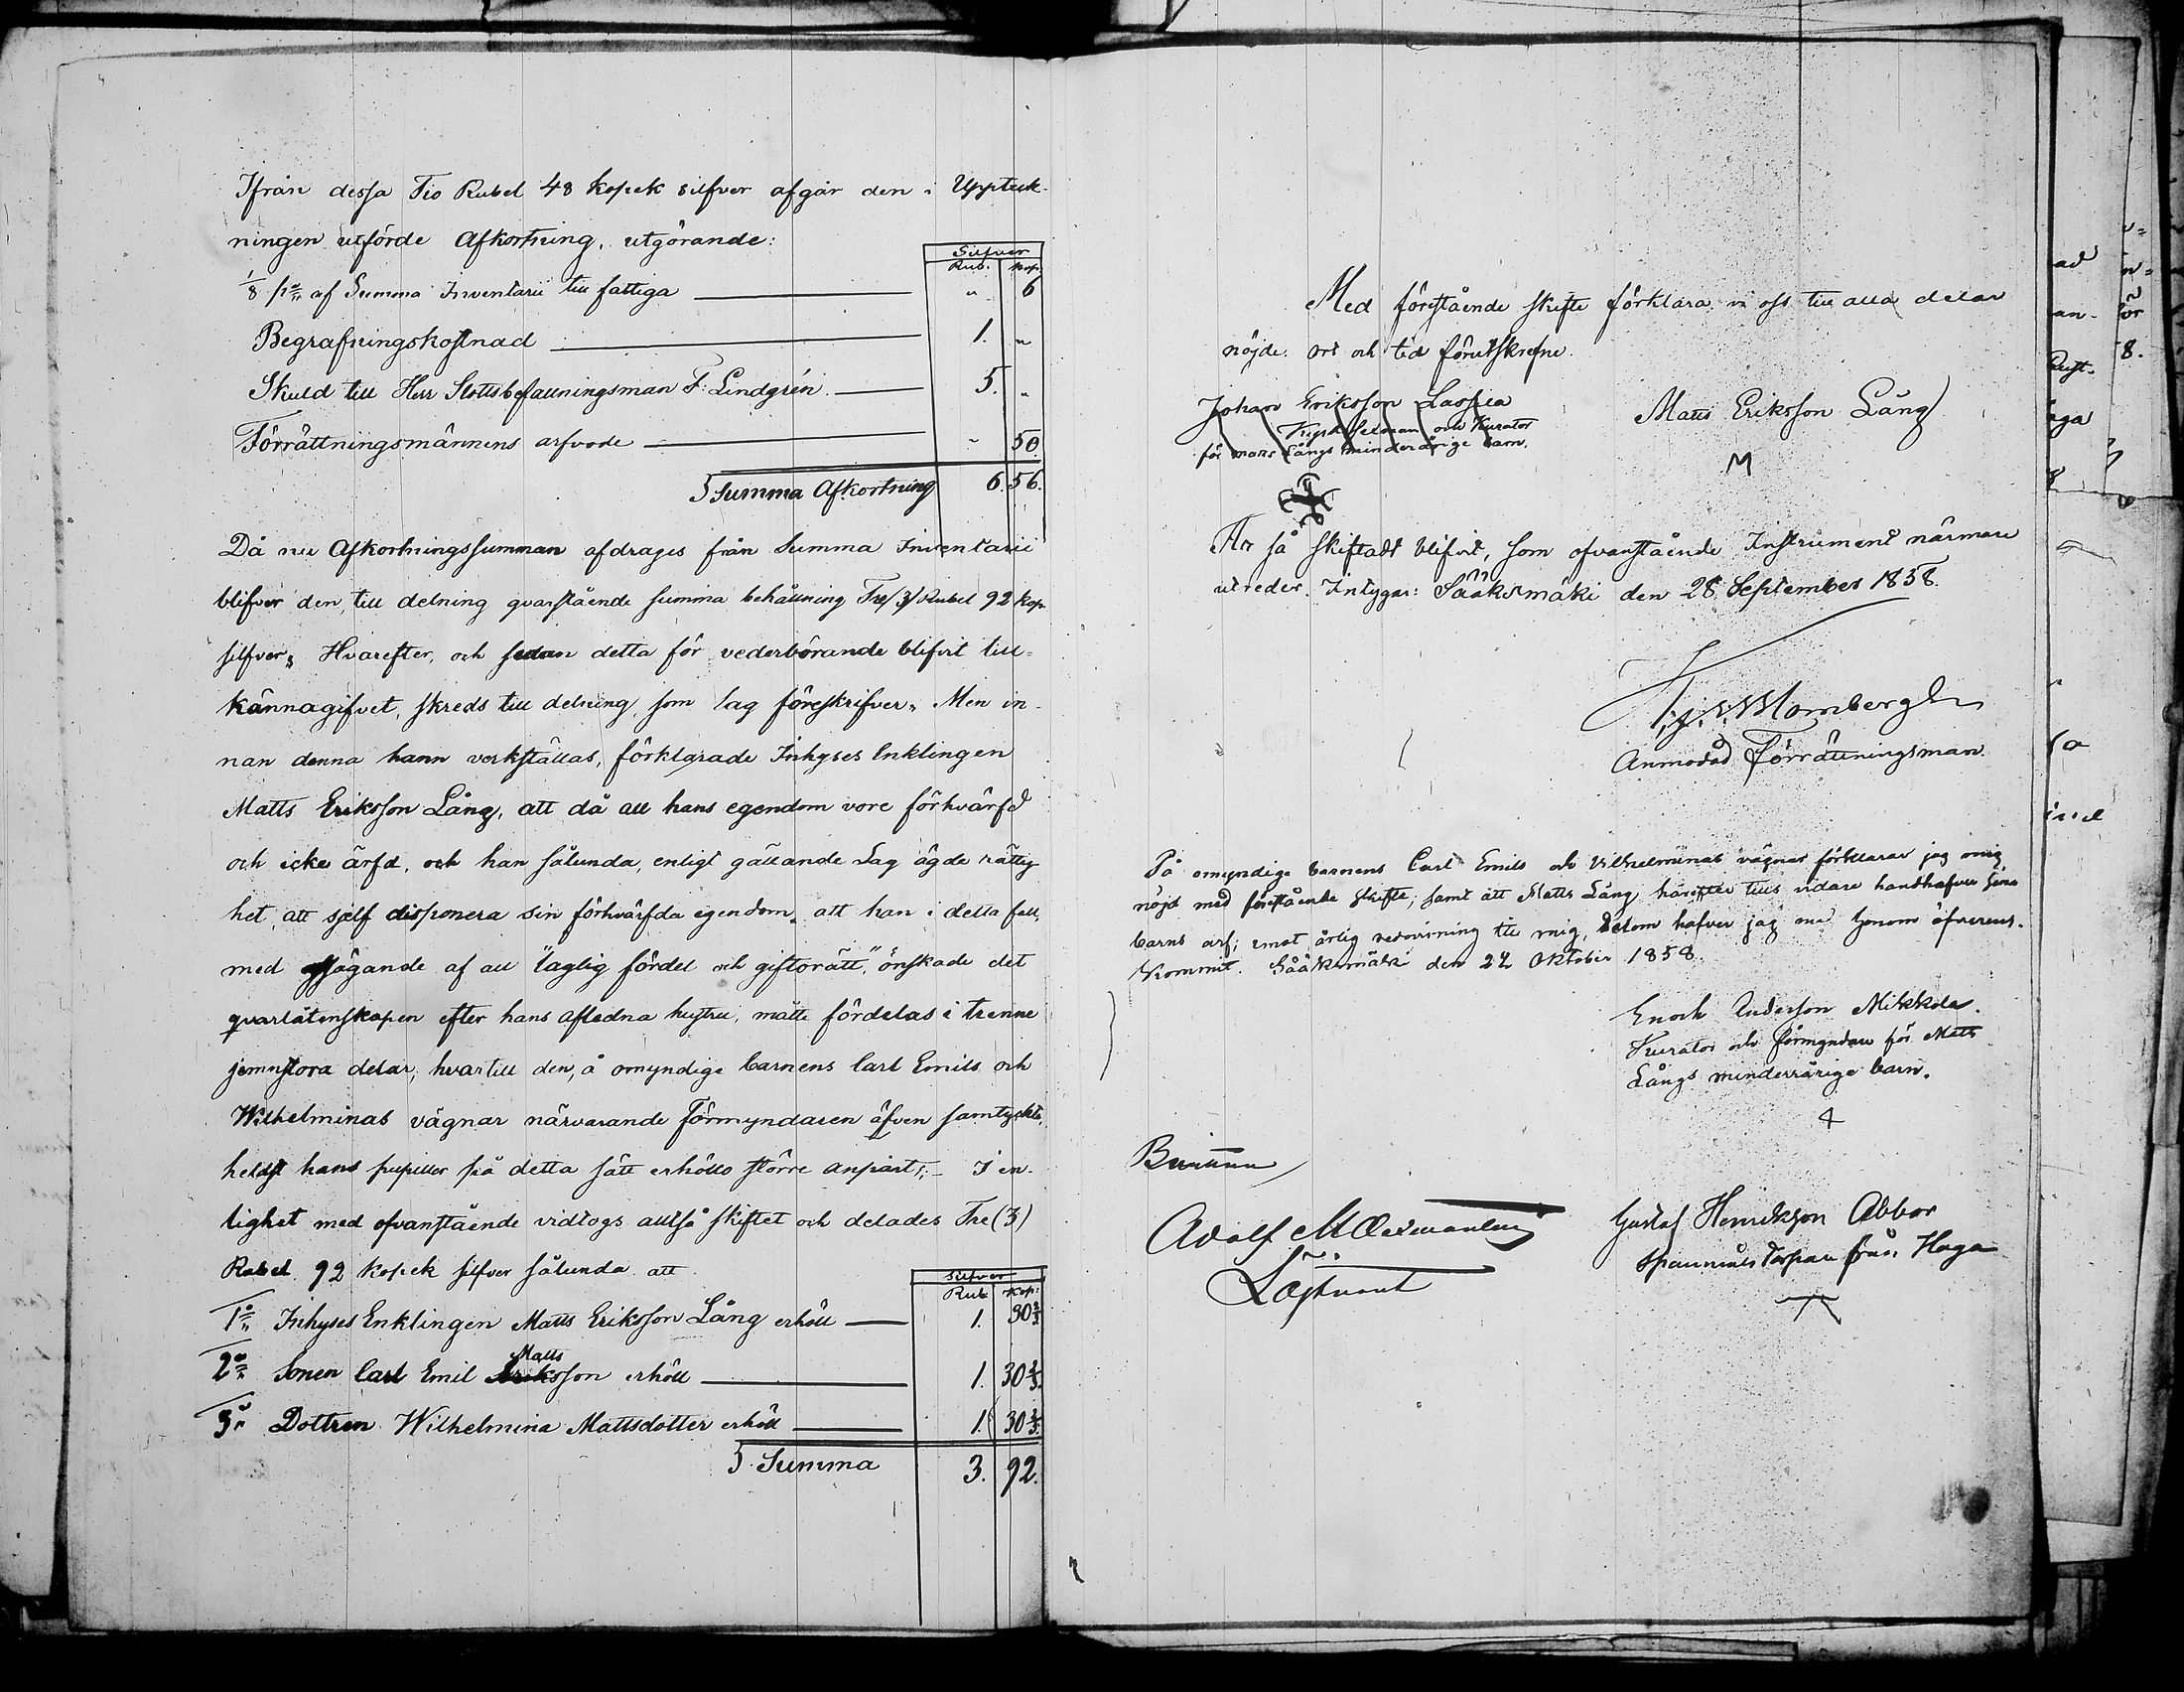 Ifrån dessa Tio Rubel 48 kopek silfver afgår den i Upptek-
ningen utförde Afkortning, utgörande:
Silfver
Rub. Kop.
1/8 pr af Summa Inventarii till fattiga " 6
Begrafningskostnad 1. "
Skuld till Herr Slottsbefallningsman F. Lindgrén. 5. "
Förrättningsmännens arfvode " 50.
Summa Afkortning 6. 56.
Då nu Afkortningssumman afdrages från Summa Inventarii
blifver den, till delning qvarstående summa behållning Tre/3/Rubel 92 kop.
silfver, Hvarefter, och sedan detta för vederbörande blifvit till=
kännagifvet, skreds till delning, som lag föreskrifver. Men in-
nan denna hann verkställas, förklarade Inhyses Enklingen
Matts Eriksson Lång, att då all hans egendom vore förhvärfd
och icke ärfd, och han sålunda, enligt gällande Lag ägde rättig
het, att sjelf disponera sin förhvärfda egendom, att han i detta fall,
med afsägande af all "laglig fördel och giftorätt", önskade det
qvarlåtenskapen efter hans aflidna hustru, måtte fördelas i trenne
jemnstora delar, hvartill den, å omyndige barnens Carl Emils och
Wilhelminas vägnar närvarande Förmyndaren äfven samtyckte,
heldst hans pupiller på detta sätt erhöllo större anpart;- I en-
lighet med ofvanstående vidtogs alltså skiftet och delades Tre (3)
Rubel 92 kopek silfver sålunda att
Silfver
Rub. Kop.
1o Inhyses Enklingen Matts Eriksson Lång erhöll 1. 30 2/3
Matts
2o Sonen Carl Emil Eriksson erhöll 1. 30 2/3.
3o Dottren Wilhelmina Mattsdotter erhöll 1. 30 2/3.
Summa 3. 92.
Med förestående skifte förklara vi oss till alla delar
nöjde. Ort och tid förutskrefne.
Johan Eriksson Laspila
och Kurator
för Matts Långs minderårige barn.
Matts Eriksson Lång
M
Är så skiftadt blifvit, som ofvanstående Instrument närmare
utreder. Intygar: Sääksmäki den 28 September 1858.
Blomberg
Anmodad förrättningsman.
På omyndige barnens Carl Emils och Vilhelminas vägnar förklarar jag mig
nöjd med förestående skifte, samt att Matts Lång härefter tills vidare handhafver sina
barns arf, emot årlig redovisning till mig, Detom hafver jag med honom öfverens-
kommit. Sääksmäki den 22 Oktober 1858.
Enoch Anderson Mikkola.
Kurator och förmyndare för Matts
Långs minderårige barn.
Bevittna
Adolf
Gustaf Henriksson Abbor
från Haga